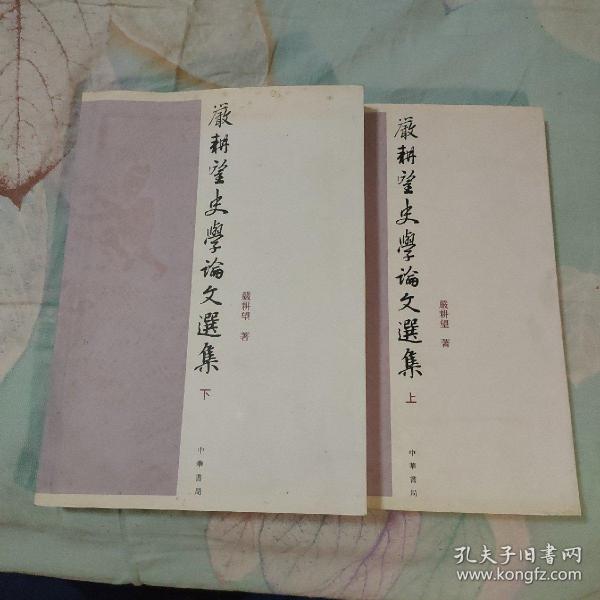 嚴耕望史學論文選集
下
嚴耕望 著
中華書局
嚴耕望史學論文選集
上
嚴耕望 著
中華書局
孔夫子旧书网
www.kongfz.com